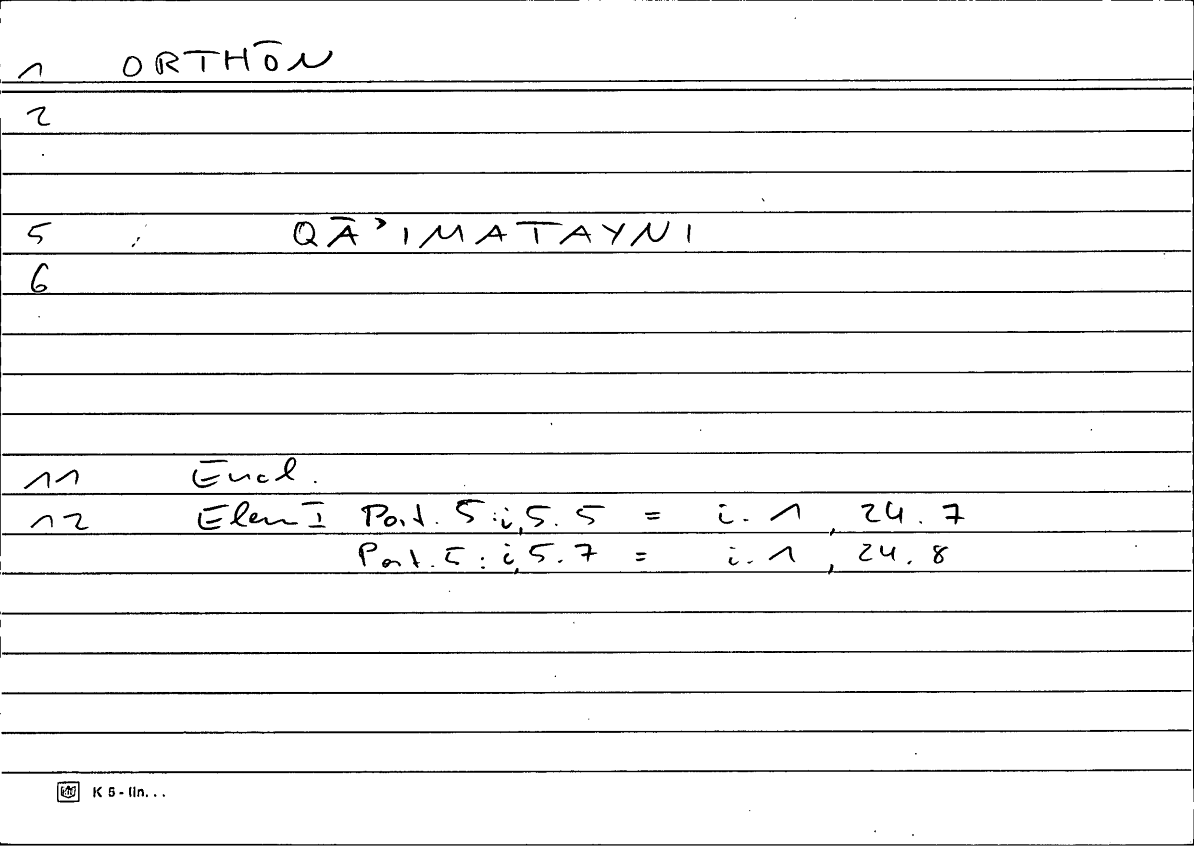 1 ORTHŌN
2
5 QĀʾIMATAYNI
6
11 Eucl.
12 Elem I Post. 5 : i, 5. 5 = i. 1, 24. 7
Post. 5 : i, 5. 7 = i. 1, 24. 8
K 5 - lin...